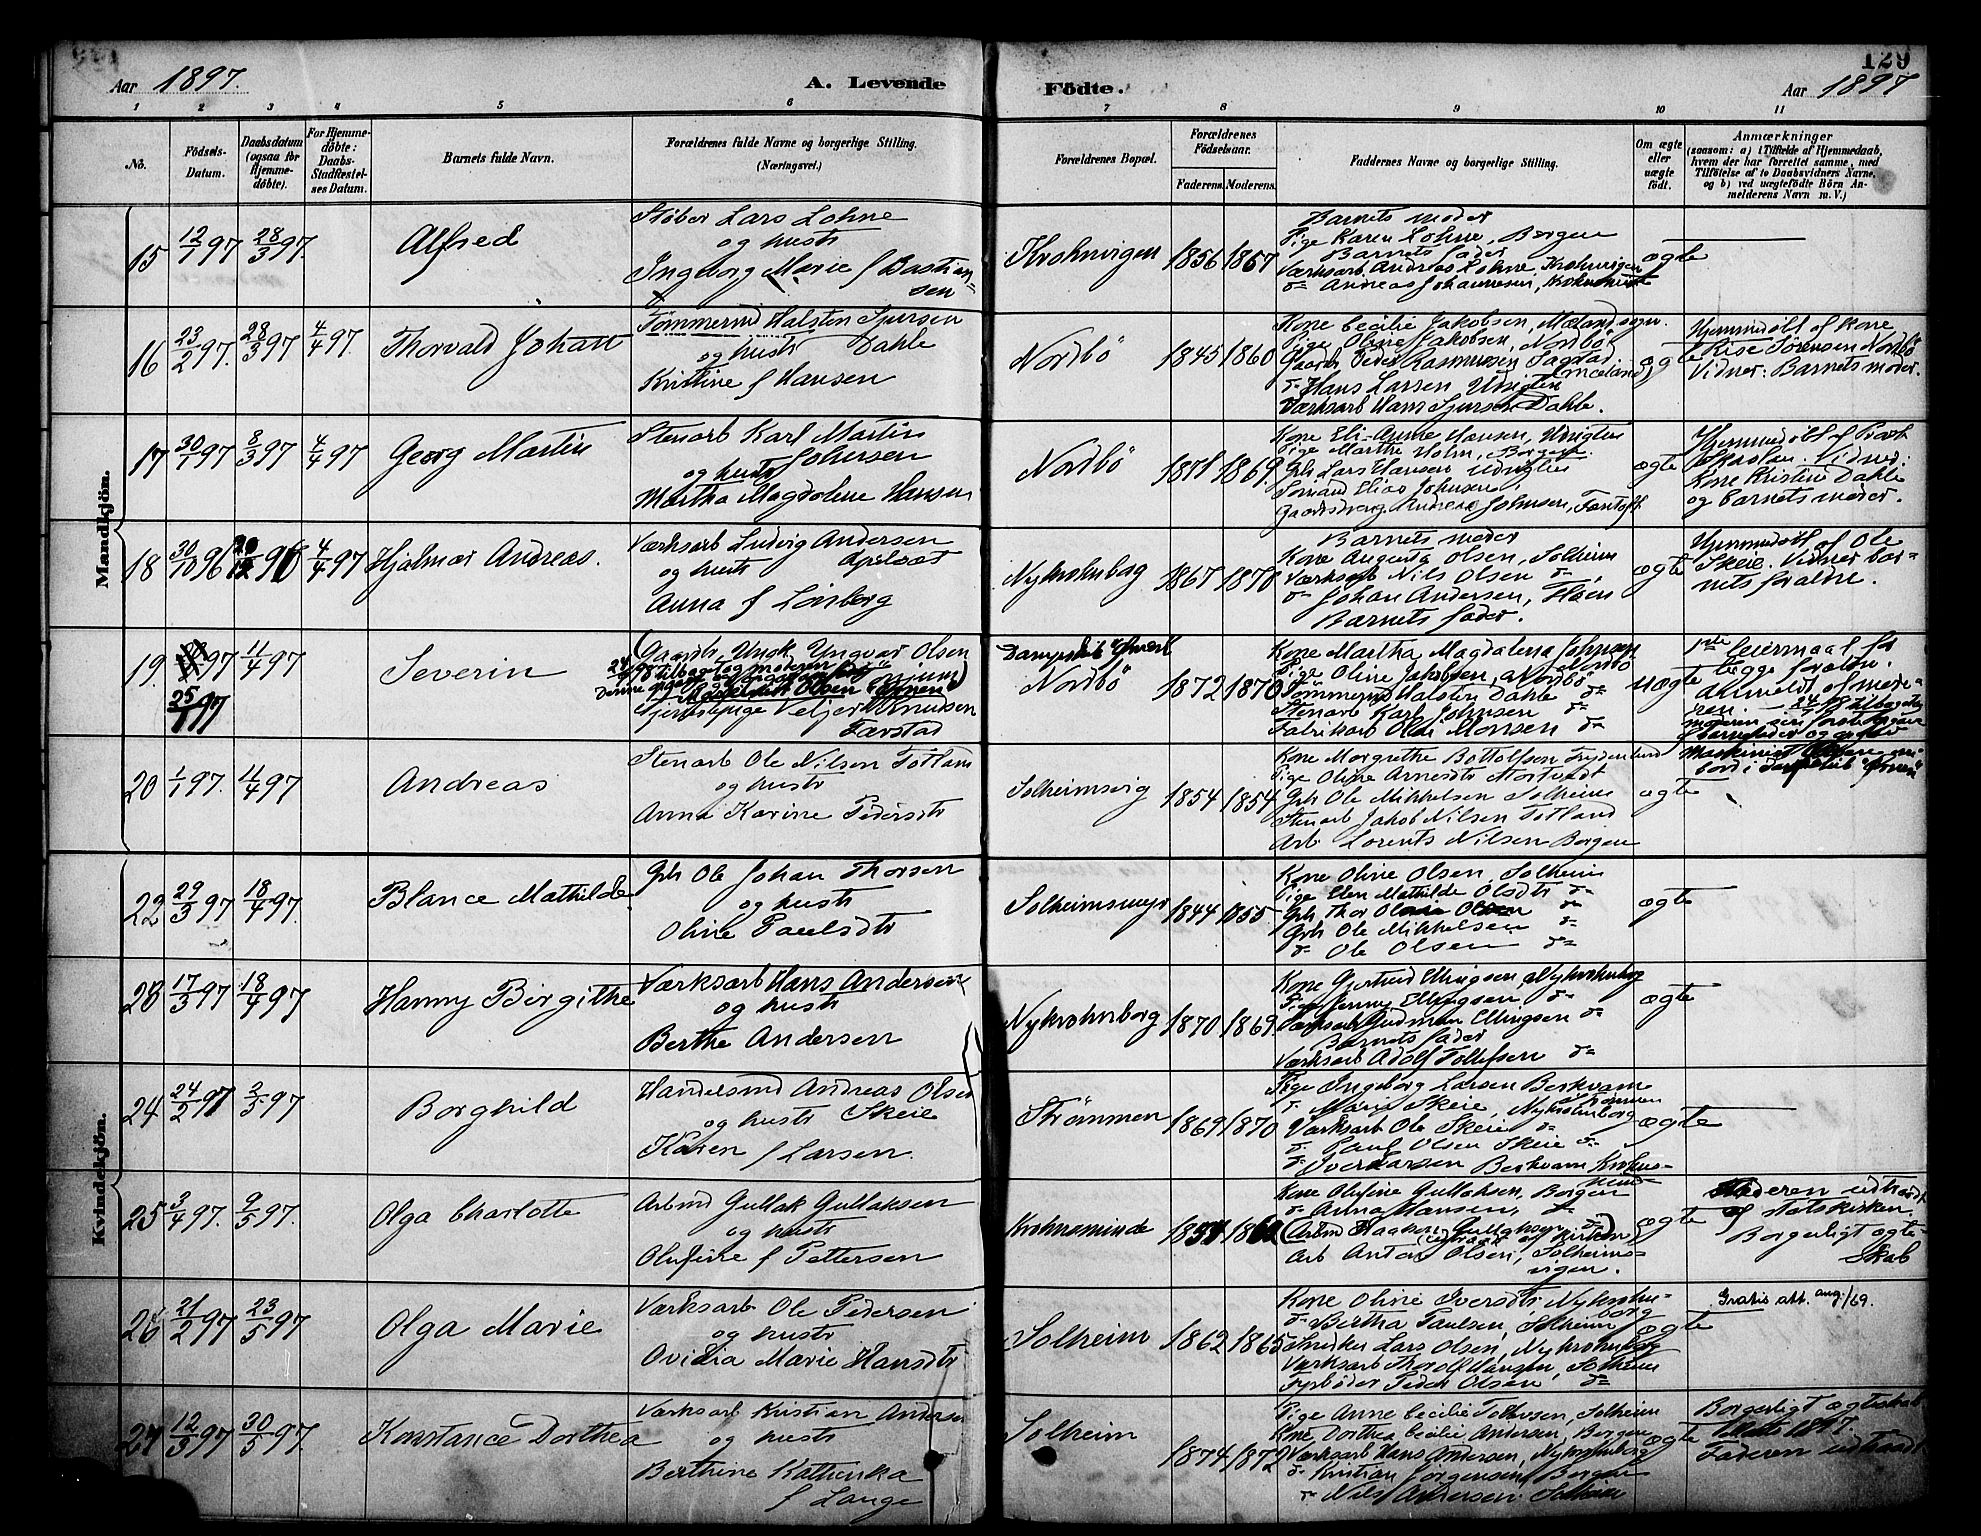 129
Aar 1897. A. Levende Födte. Aar 1897
1 2 3 4 5 6 7 8 9 10 11
No.
Födsels-
Datum.
Daabsdatum
(ogsaa for
Hjemme-
döbte).
For Hjemme-
döbte:
Daabs-
Stadfæstel-
ses Datum.
Barnets fulde Navn.
Forældrenes fulde Navne og borgerlige Stilling.
(Næringsvei.)
Forældrenes Bopæl.
Forældrenes
Födselsaar.
Faderens. Moderens.
Faddernes Navne og borgerlige Stilling.
Om ægte
eller
uægte
födt.
Anmærkninger
(saasom: a) i Tilfælde af Hjemmedaab,
hvem der har forrettet samme, med
Tilföielse af to Daabsvidners Navne,
og b) ved uægtefödte Börn An-
melderens Navn m. V.)
Mandkjön.
15 12/1 97 28/3 97. Alfred
Støber Lars Lohne
og hustr
Ingeborg Marie f Bastian-
sen
Krohnvigen 1856 1857
Barnets moder
Pige Karen Lohne, Bergen
Barnets fader
Værksarb. Andreas Lohne, Krohnvigen
d= Andreas Johannesen,
ægte
16 23/2 97. 28/3 97 4/4 97. Thorvald Johan
Tømmermd Halsten Sjursen
og hustr Dahle
Kristine f Hansen
Nordbö 1845 1860
Kone Cecilie Jakobsen, Mælandsogn.
Pige Oline Jakobsen, Nordbö
Gaardbr Peder Rasmussen Sagstad
d= Hans Larsen Uregten
Værksarb Hans Sjursen Dahle.
ægte
Hjemmedöbt af Kone
Elise Sørensen Nordbö
Vidner: Barnets moder.
17 30/1 97 8/3 97 4/4 97 Georg Martin
Stenarb Karl Martin
og hustr Johnsen
Martha Magdalene Hansen
Nordbö 1871 1869.
Kone Eli-Anne Hansen,
Pige Marthe Holm, Bergen
Grb Lars Hansen
Sømand Elias Johnsen,
Gaardsdreng Andreas Johnsen, Fantoft
ægte
Hjemmedöbt af
Vidner:
Kone Kristine Dahle
og barnets moder.
18 30/10 96 4/4 97 Hjalmar Andreas.
Værksarb Ludvig Andersen
og hustr Apeltvat
Anna f Lönborg
Nykrohnborg 1867 1870
Barnets moder
Kone Augusta Olsen, Solheim
Værksarb Nils Olsen d=
d= Johan Andersen, Fløen
Barnets fader.
ægte
Hjemmedöbt af Ole
Skeie. Vidner bar-
nets forældre.
19. 97 11/4 97 Severin
25/1 97
Ungk. Yngvar Olsen
Pige Veljer Knutsen
Færstad
Nordbö 1872 1870
Kone Martha Magdalena Johnsen
Pige Oline Jakobsen, Nordbö
Tømmermd Halsten Dahle d=
Stenarb Karl Johnsen d=
Fabrikarb Ole Monsen d=
uægte
1ste leiermaal for
begge forældre.
Anmeldt af mode-
ren.
20 1/1 97. 4/4 97 Andreas
Stenarb Ole Nilsen Totland
og hustr
Anna Karine Pedersdtr
Solheimsvig 1854 1854
Kone Margrethe Bottolfsen Frydenlund
Pige Oline Arnesdtr Nortvedt
Grb Ole Mikkelsen Solheim
Stenarb Jakob Nilsen Totland
Arb Lorents Nilsen Bergen
ægte
Kvindekjön.
22 29/3 97 18/4 97. Blance Mathilde
Grb Ole Johan Thorsen
og hustr
Oline Paulsdtr
Solheimsmyr 1844 1855
Kone Oline Olsen, Solheim
Pige Elen Mathilde Olsdtr d=
Grb Thor Olsen d=
Grb Ole Mikkelsen d=
d= Ole Olsen d=
ægte
23 17/3 97 18/4 97 Hanny Birgithe
Værksarb Hans Andersen
og hustr
Berthe Andersen
Nykrohnborg 1870 1869.
Kone Gjertrud Ellingsen, Nykrohnborg
Pige Jenny Ellingsen d=
Værksarb Gudman Ellingsen d=
Barnets fader
Værksarb Adolf Tollefsen d=
ægte
24 24/2 97 2/5 97 Borghild
Handelsmd Andreas Olsen
og hustr Skeie
Karen f Larsen.
Strømmen 1869 1870
Pige Ingeborg Larsen Berkvam
Strømmen
d= Marie Skeie, Nykrohnborg
Værksarb Ole Skeie d=
d= Paul Olsen Skeie d=
d= Iver Larsen Berkvam Krohns-
minde
ægte
25 3/4 97. 9/5 97. Olga Charlotte
Arbmd Gullak Gullaksen
og hustr
Olufine f Pettersen
Krohnsminde
Kone Olufine Gullaksen, Bergen
d= Anna Hansen, d=
(Arbmd Haaken Gullaksen d=
(udtraadt af kirken)
Arb Anton Olsen, Solheims-
vigen.
ægte
Faderen udtraadt
af statskirken.
Borgerligt ægte-
skab
26 21/2 97 23/5 97 Olga Marie
Værksarb Ole Pedersen
og hustr
Ovidia Marie Hansdtr
Solheim 1862 1865
Kone Oline Iversdtr, Nykrohn-
borg
d= Bertha Paulsen, Solheim
Snedker Lars Olsen, Nykrohnborg
Værksarb Thorolf Hansen, Solheim
Fyrbøder Peder Olsen d=
ægte
Gratis att. aug./69.
27 12/3 97 30/5 97. Konstance Dorthea
Værksarb Kristian Andersen
og hustr
Berthine Kathinka
f Lange
Solheim 1874 1872
Pige Anne Cecilie Tollefsen, Solheim
Kone Dorthea Cecilie Andersen, Bergen
Værksarb Hans Andersen, Nykrohnborg
d= Kristian Jörgensen, Bergen
d= Nils Andersen, Solheim
ægte
Borgerligt ægteskab
1897.
Faderen udtraadt